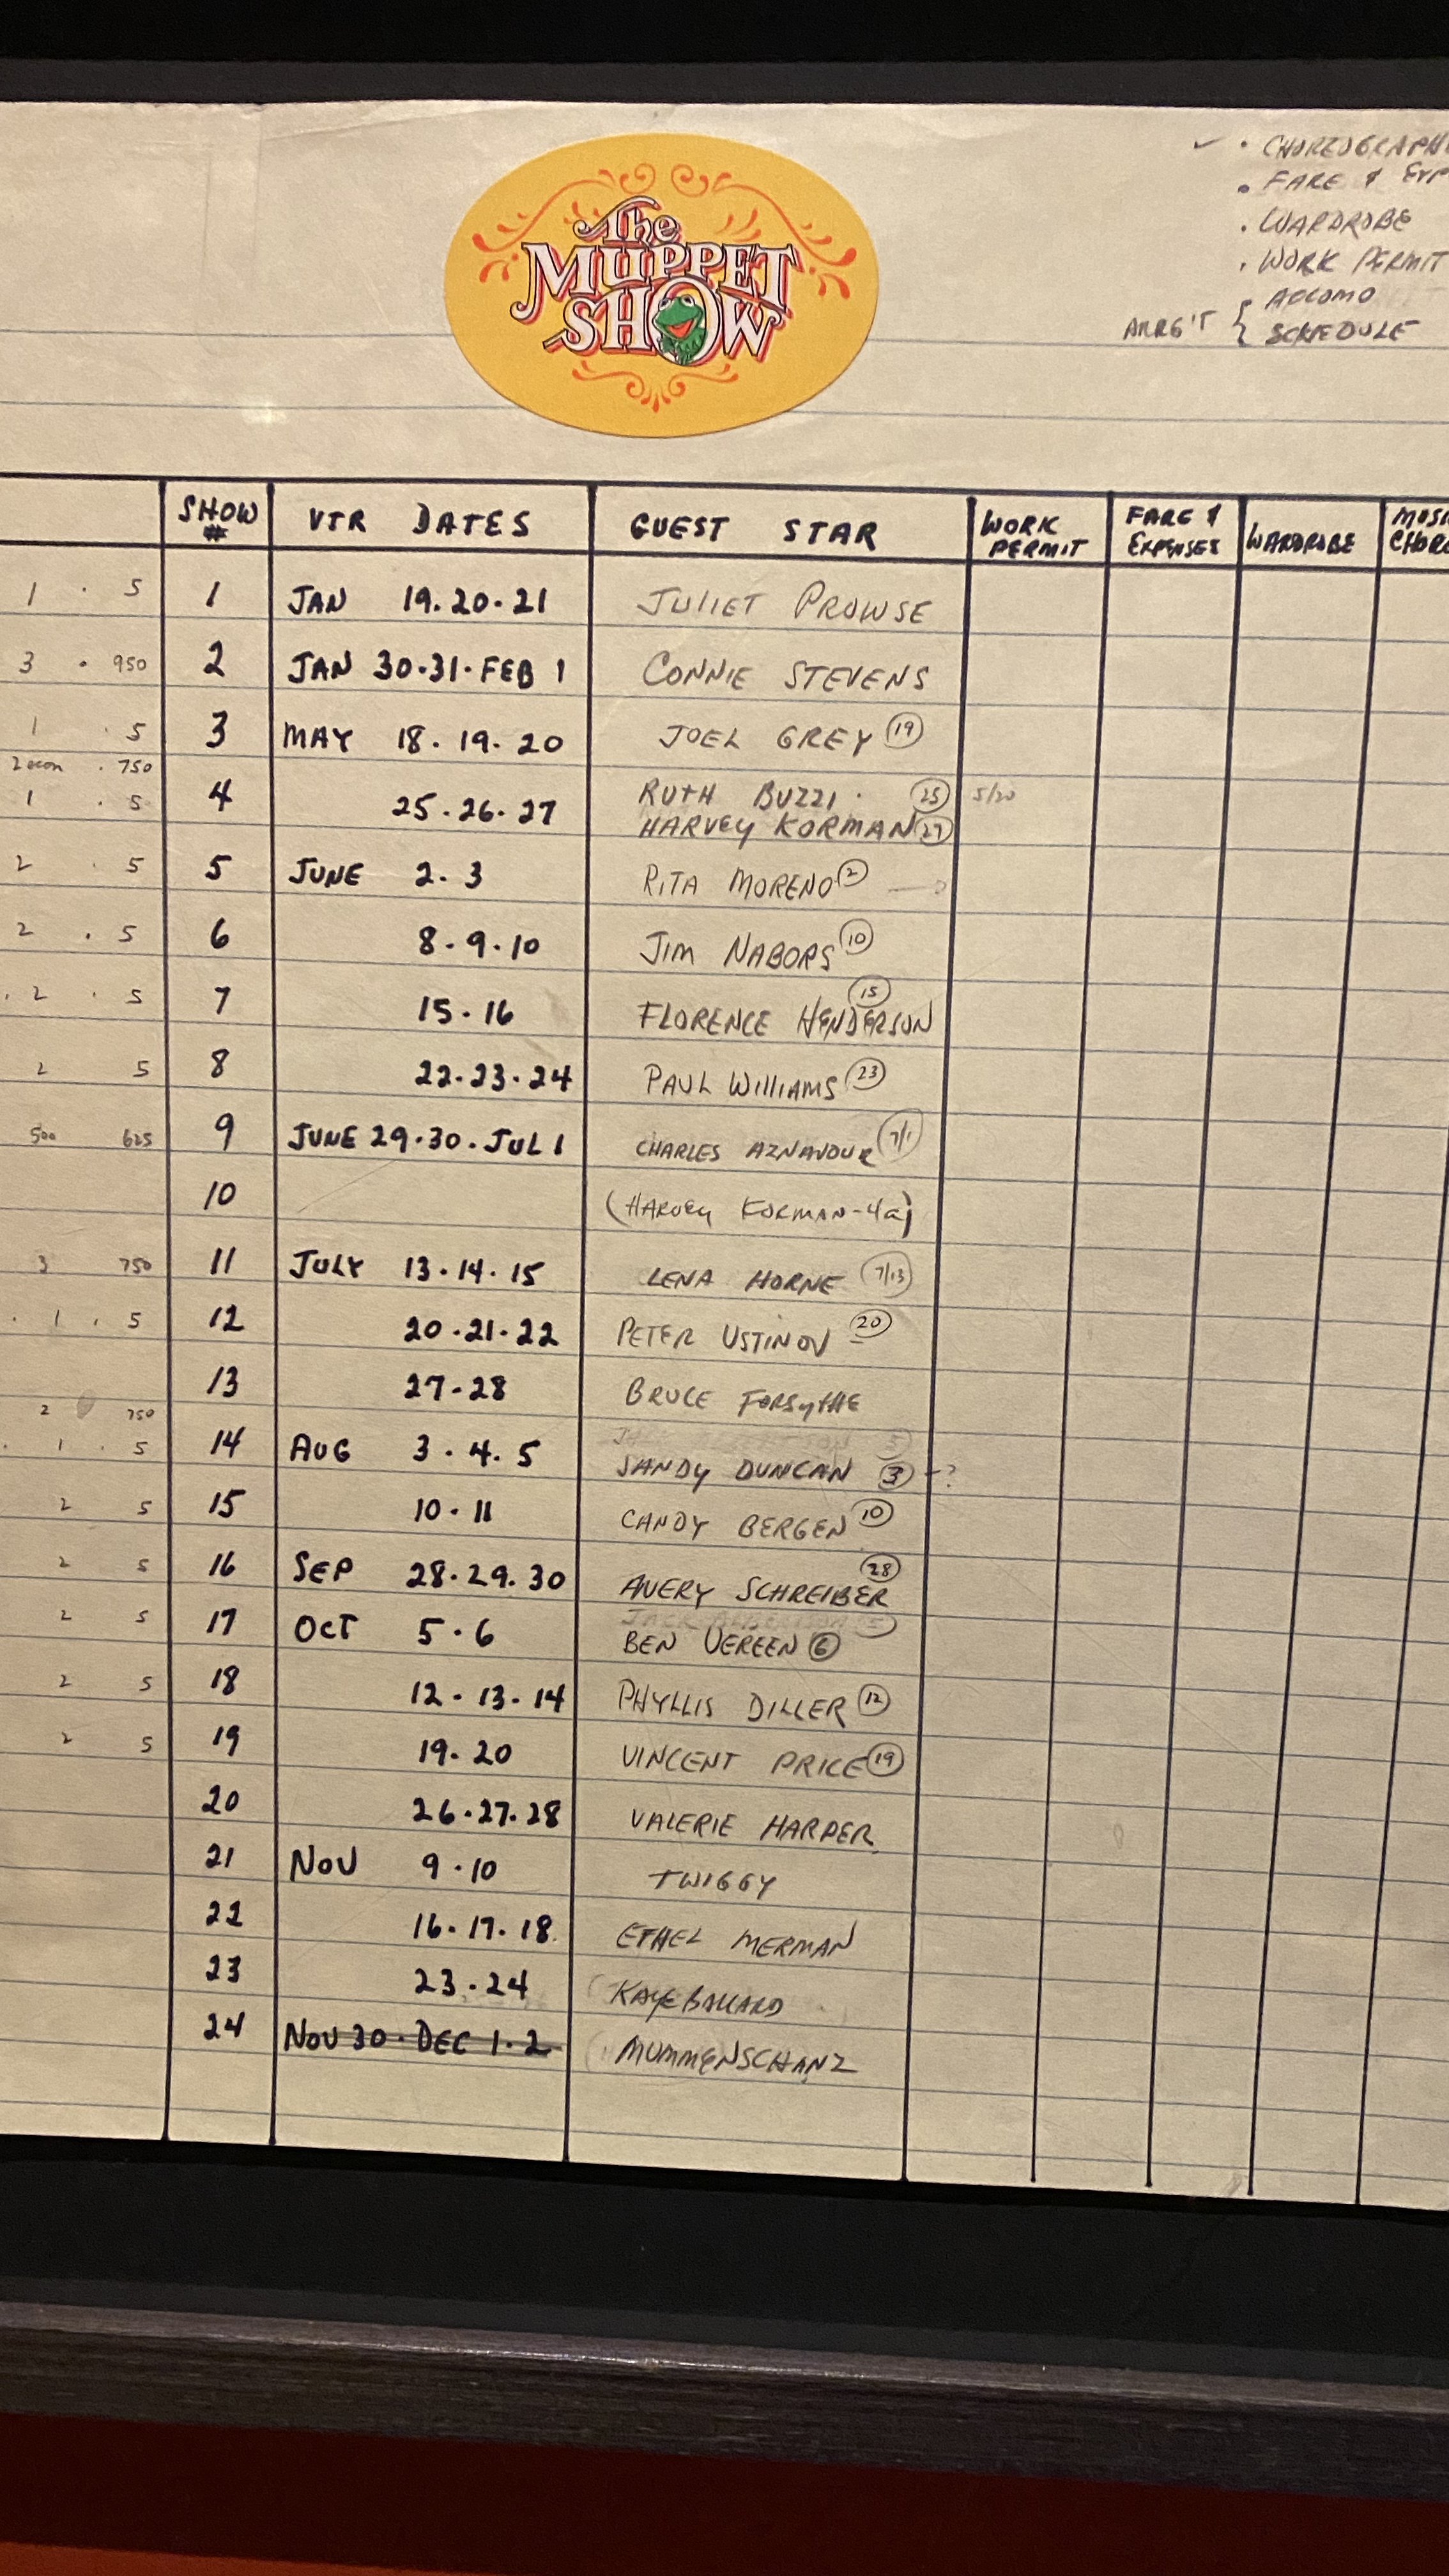 The
MUPPET
SHOW
CHOREOGRAPH
FARE & EXP
WARDROBE
WORK PERMIT
ACCOMO
ARRG'T { SCHEDULE
SHOW # VTR DATES GUEST STAR WORK PERMIT FARE & EXPENSES WARDROBE MUSI CHORE
1 · 5 1 JAN 19.20.21 JULIET PROWSE
3 · 950 2 JAN 30.31.FEB 1 CONNIE STEVENS
1 · 5 3 MAY 18.19.20 JOEL GREY 19
2 econ · 750
1 · 5 4 25.26.27 RUTH BUZZI · 25 5/20
HARVEY KORMAN 27
2 · 5 5 JUNE 2.3 RITA MORENO 2 → ?
2 · 5 6 8.9.10 JIM NABORS 10
· 2 · 5 7 15.16 FLORENCE HENDERSON 15
2 5 8 22.23.24 PAUL WILLIAMS 23
500 625 9 JUNE 29.30.JUL 1 CHARLES AZNAVOUR 7/1
10 (HARVEY KORMAN-4a)
3 750 11 JULY 13.14.15 LENA HORNE 7/13
· 1 · 5 12 20.21.22 PETER USTINOV 20
13 27-28 BRUCE FORSYTHE
2 750
· 1 · 5 14 AUG 3.4.5 SANDY DUNCAN 3 -?
2 5 15 10.11 CANDY BERGEN 10
2 5 16 SEP 28.29.30 AVERY SCHREIBER 28
2 5 17 OCT 5.6 BEN VEREEN 6
2 5 18 12.13.14 PHYLLIS DILLER 12
2 5 19 19.20 VINCENT PRICE 19
20 26.27.28 VALERIE HARPER
21 NOV 9.10 TWIGGY
22 16.17.18. ETHEL MERMAN
23 23.24 KAYE BALLARD
24 NOV 30.DEC 1.2 MUMMENSCHANZ